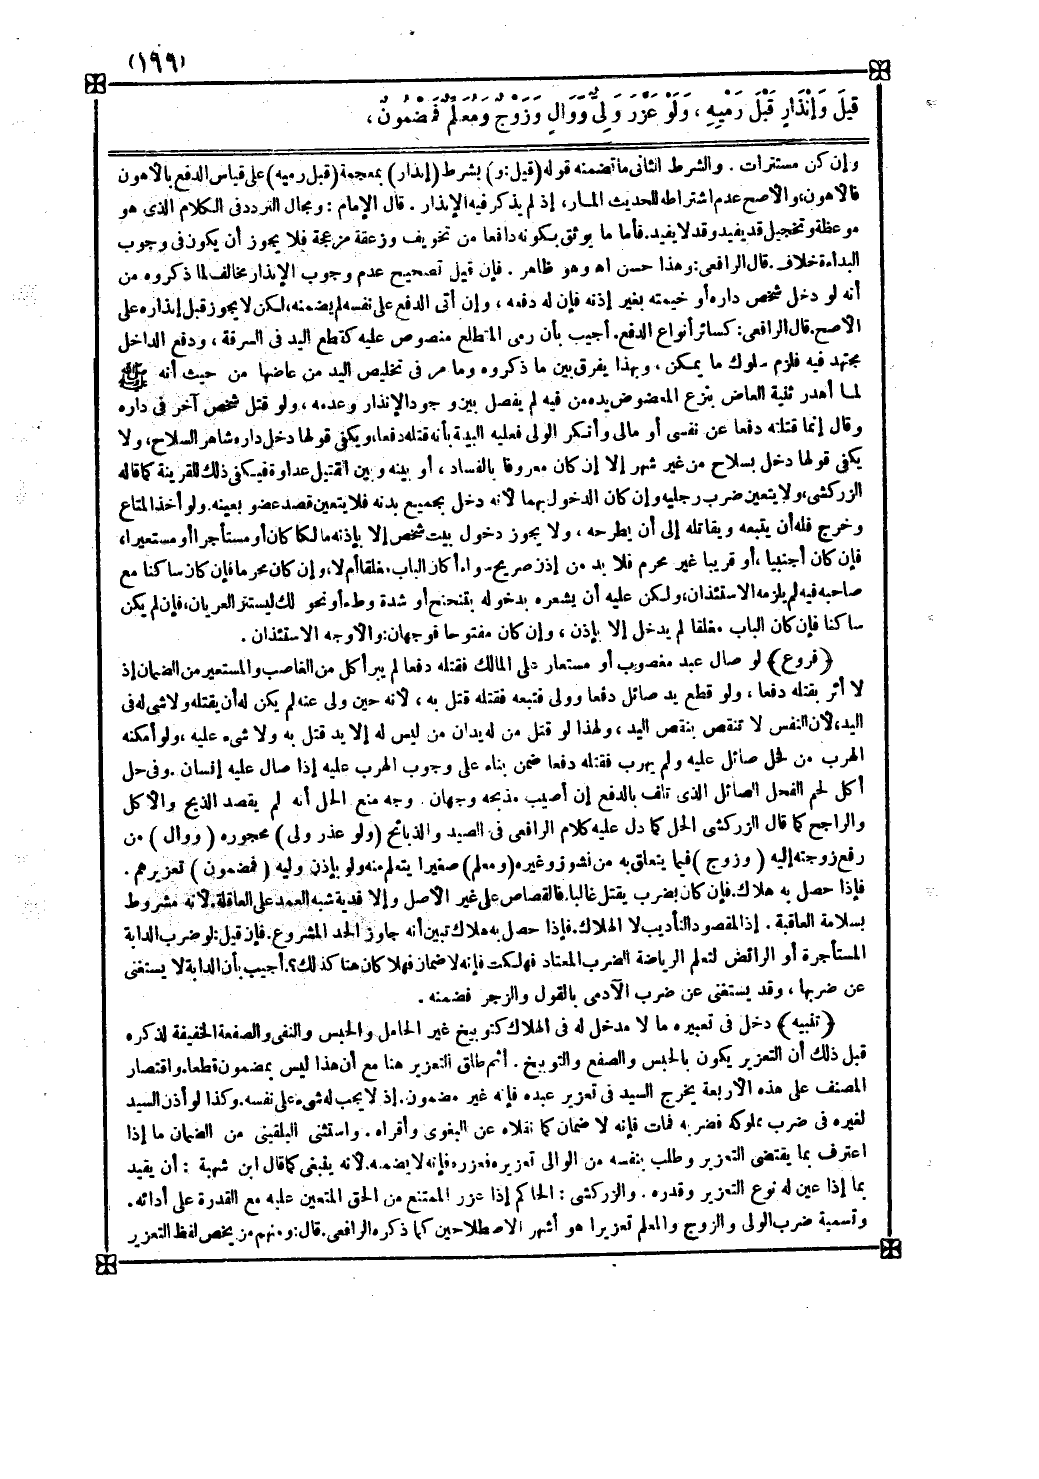 (١٩٩)
قِيلَ وَإِنْذَارٍ قَبْلَ رَمْيِهِ ، وَلَوْ عَزَّرَ وَلِيٌّ وَوَالٍ وَزَوْجٌ وَمُعَلِّمٌ فَمَضْمُونٌ ،
وإن كن مستترات . والشرط الثانى ما تضمنه قوله (قيل : و) بشرط (إنذار) بمعجمة (قبل رميه) على قياس الدفع بالأهون
فالأهون، والأصح عدم اشتراطه للحديث المار، إذ لم يذكر فيه الإنذار . قال الإمام : ومجال التردد فى الكلام الذى هو
موعظة وتخجيل قد يفيد وقد لا يفيد. فأما ما يوثق بكونه دافعا من تخويف وزعقة مزعجة فلا يجوز أن يكون فى وجوب
البداءة خلاف . قال الرافعى : وهذا حسن اه وهو ظاهر . فإن قيل تصحيح عدم وجوب الإنذار مخالف لما ذكروه من
أنه لو دخل شخص داره أو خيمته بغير إذنه فإن له دفعه ، وإن أتى الدفع على نفسه لم يضمنه، لكن لا يجوز قبل إنذاره على
الأصح. قال الرافعى: كسائر أنواع الدفع. أجيب بأن رمى المتطلع منصوص عليه كقطع اليد فى السرقة ، ودفع الداخل
مجتهد فيه فلزم سلوك ما يمكن ، وبهذا يفرق بين ما ذكروه وما مر فى تخليص اليد من عاضها من حيث أنه ﷺ
لما أهدر ثنية العاض بنزع المعضوض يده من فيه لم يفصل بين وجود الإنذار وعدمه ، ولو قتل شخص آخر فى داره
وقال إنما قتلته دفعا عن نفسى أو مالى وأنكر الولى فعليه البينة بأنه قتله دفعا، ويكفى قولها دخل داره شاهر السلاح، ولا
يكفى قولها دخل بسلاح من غير شهر إلا إن كان معروفا بالفساد ، أو بينه وبين القتيل عداوة فيكفى ذلك للقرينة كما قاله
الزركشى، ولا يتعين ضرب رجليه وإن كان الدخول بهما لأنه دخل بجميع بدنه فلا يتعين قصد عضو بعينه. ولو أخذ المتاع
وخرج فله أن يتبعه ويقاتله إلى أن يطرحه ، ولا يجوز دخول بيت شخص إلا بإذنه مالكا كان أو مستأجرا أو مستعيرا،
فإن كان أجنبيا ، أو قريبا غير محرم فلا بد من إذن صريح سواء أكان الباب مغلقا أم لا، وإن كان محرما فإن كان ساكنا مع
صاحبه فيه لم يلزمه الاستئذان، ولكن عليه أن يشعره بدخوله بتنحنح أو شدة وطء أو نحو ذلك ليستتر العريان، فإن لم يكن
ساكنا فإن كان الباب مغلقا لم يدخل إلا بإذن ، وإن كان مفتوحا فوجهان: والأوجه الاستئذان .
﴿فروع﴾ لو صال عبد مغصوب أو مستعار على المالك فقتله دفعا لم يبرأ كل من الغاصب والمستعير من الضمان إذ
لا أثر بقتله دفعا ، ولو قطع يد صائل دفعا وولى فتبعه فقتله قتل به ، لأنه حين ولى عنه لم يكن له أن يقتله ولا شىء له فى
اليد، لأن النفس لا تنقص بنقص اليد ، ولهذا لو قتل من له يدان من ليس له إلا يد قتل به ولا شىء عليه ، ولو أمكنه
الهرب من فحل صائل عليه ولم يهرب فقتله دفعا ضمن بناء على وجوب الهرب عليه إذا صال عليه إنسان . وفى حل
أكل لحم الفحل الصائل الذى تلف بالدفع إن أصيب مذبحه وجهان . وجه منع الحل أنه لم يقصد الذبح والأكل
والراجح كما قال الزركشى الحل كما دل عليه كلام الرافعى فى الصيد والذبائح (ولو عذر ولى) محجوره (ووال) من
رفع زوجته إليه (وزوج) فيما يتعلق به من نشوز وغيره (ومعلم) صغيرا يتعلم منه ولو بإذن وليه (فمضمون) تعزيرهم .
فإذا حصل به هلاك. فإن كان بضرب يقتل غالبا. فالقصاص على غير الأصل وإلا فدية شبه العمد على العاقلة. لأنه مشروط
بسلامة العاقبة . إذ المقصود التأديب لا الهلاك. فإذا حصل به هلاك تبين أنه جاوز الحد المشروع. فإن قيل: لو ضرب الدابة
المستأجرة أو الرائض لتعلم الرياضة الضرب المعتاد فهلكت فإنه لا ضمان فهلا كان هنا كذلك؟. أجيب بأن الدابة لا يستغنى
عن ضربها ، وقد يستغنى عن ضرب الآدمى بالقول والزجر فضمنه .
﴿تنبيه﴾ دخل فى تعبيره ما لا مدخل له فى الهلاك كتوبيخ غير الحامل والحبس والنفى والصفعة الخفيفة لذكره
قبل ذلك أن التعزير يكون بالحبس والصفع والتوبيخ . ثم أطلق التعزير هنا مع أن هذا ليس بمضمون قطعا. واقتصار
المصنف على هذه الأربعة يخرج السيد فى تعزير عبده فإنه غير مضمون. إذ لا يجب له شىء على نفسه. وكذا لو أذن السيد
لغيره فى ضرب مملوكه فضربه فمات فإنه لا ضمان كما نقلاه عن البغوى وأقراه . واستثنى البلقينى من الضمان ما إذا
اعترف بما يقتضى التعزير وطلب بنفسه من الوالى تعزيره فعزره فإنه لا يضمنه. لأنه ينبغى كما قال ابن شهبة : أن يقيد
بما إذا عين له نوع التعزير وقدره . والزركشى : الحاكم إذا عزر الممتنع من الحق المتعين عليه مع القدرة على أدائه .
وتسمية ضرب الولى والزوج والمعلم تعزيرا هو أشهر الاصطلاحين كما ذكره الرافعى. قال: ومنهم من يخص لفظ التعزير